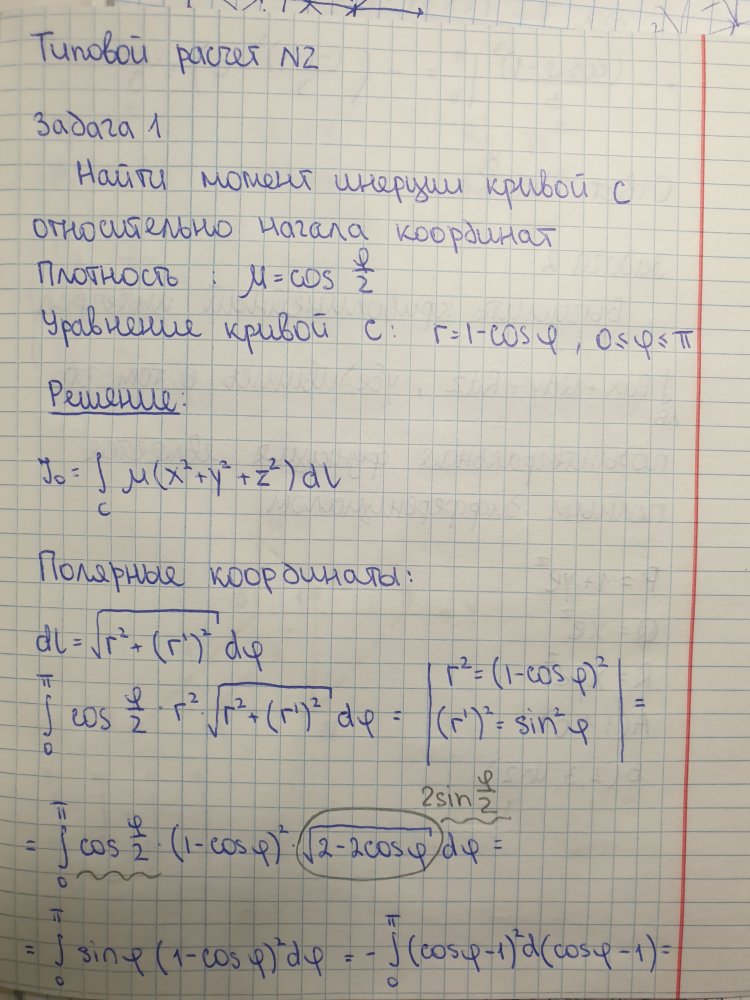 Типовой расчет N2
Задача 1
Найти момент инерции кривой С
относительно начала координат
Плотность : μ=cos φ/2
Уравнение кривой С: r=1-cosφ, 0≤φ≤π
Решение:
J₀=∫_C μ(x²+y²+z²)dl
Полярные координаты:
dl=√(r²+(r')²) dφ
∫₀^π cos φ/2 · r² · √(r²+(r')²) dφ = | r²=(1-cosφ)² (r')²=sin²φ | =
2sin φ/2
= ∫₀^π cos φ/2 · (1-cosφ)² · √(2-2cosφ) dφ =
= ∫₀^π sinφ (1-cosφ)² dφ = -∫₀^π (cosφ-1)² d(cosφ-1) =